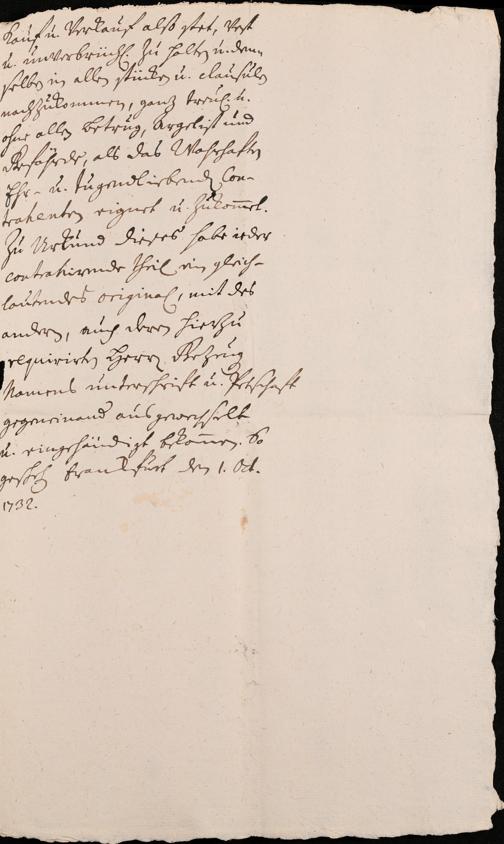 Kauf u. Verkauf also stet, vest
u. unverbrüchl. zu halten u. dem-
selben in allen stücken u. clausuln
nachzukommen, ganz treul. u.
ohne allen betrug, Argelist und
Gefährde, als das Wahrhafften
Ehr- u. tugendliebend. Con-
trahenten eignet u. zukom̄et.
Zu Urkund dieses habe ieder
contrahirende theil ein gleich-
lautendes original, mit des
andern, auch deren hierzu
requirirten Herrn Gezeug
Namens unterschrifft u. Petschafft
gegeneinand ausgewechselt
u. eingehändigt bekom̄en. So
gescheh. Franckfurt den 1. Oct.
1732.